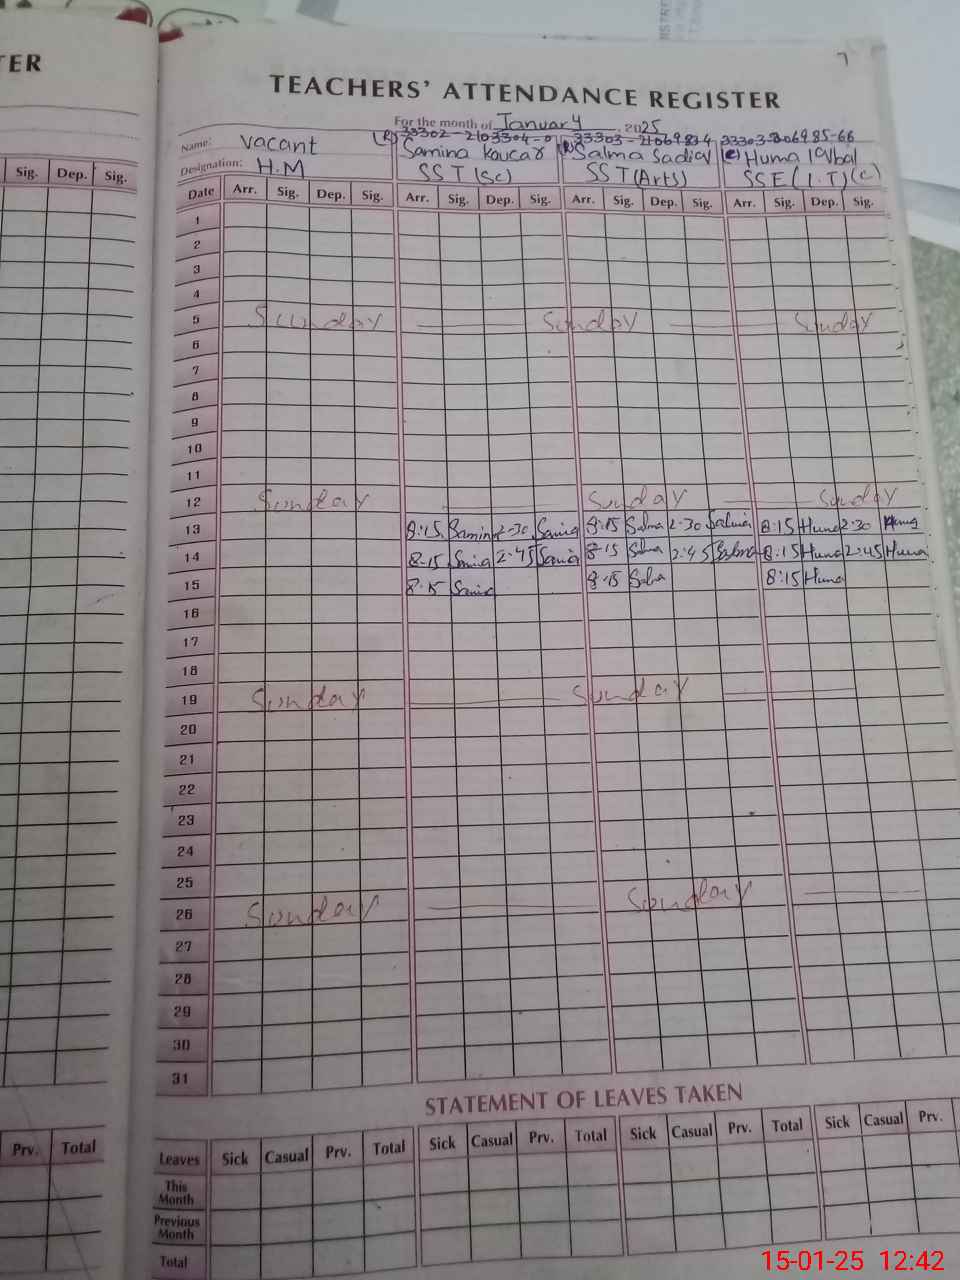 TER
Sig. Dep. Sig.
Prv. Total
7
TEACHERS' ATTENDANCE REGISTER
For the month of January 2025
Name: vacant Samina Koucar Salma Sadiq Huma Iqbal
Designation: H.M SST (Sc) SST (Arts) SSE (I.T) (C)
Date Arr. Sig. Dep. Sig. Arr. Sig. Dep. Sig. Arr. Sig. Dep. Sig. Arr. Sig. Dep. Sig.
1
2
3
4
5 Sunday Sunday Sunday
6
7
8
9
10
11
12 Sunday Sunday Sunday
13 8:15 Samina 2-30 8:15 Salma 2-30 Salma 8:15 Huma 2-30 Huma
14 8-15 2:45 8-15 Salma 2:45 Salma 8:15 Huma 2:45 Huma
15 8-15 8-15 8:15 Huma
16
17
18
19 Sunday Sunday
20
21
22
23
24
25
26 Sunday Sunday
27
28
29
30
31
STATEMENT OF LEAVES TAKEN
Leaves Sick Casual Prv. Total Sick Casual Prv. Total Sick Casual Prv. Total Sick Casual Prv.
This Month
Previous Month
Total
15-01-25 12:42